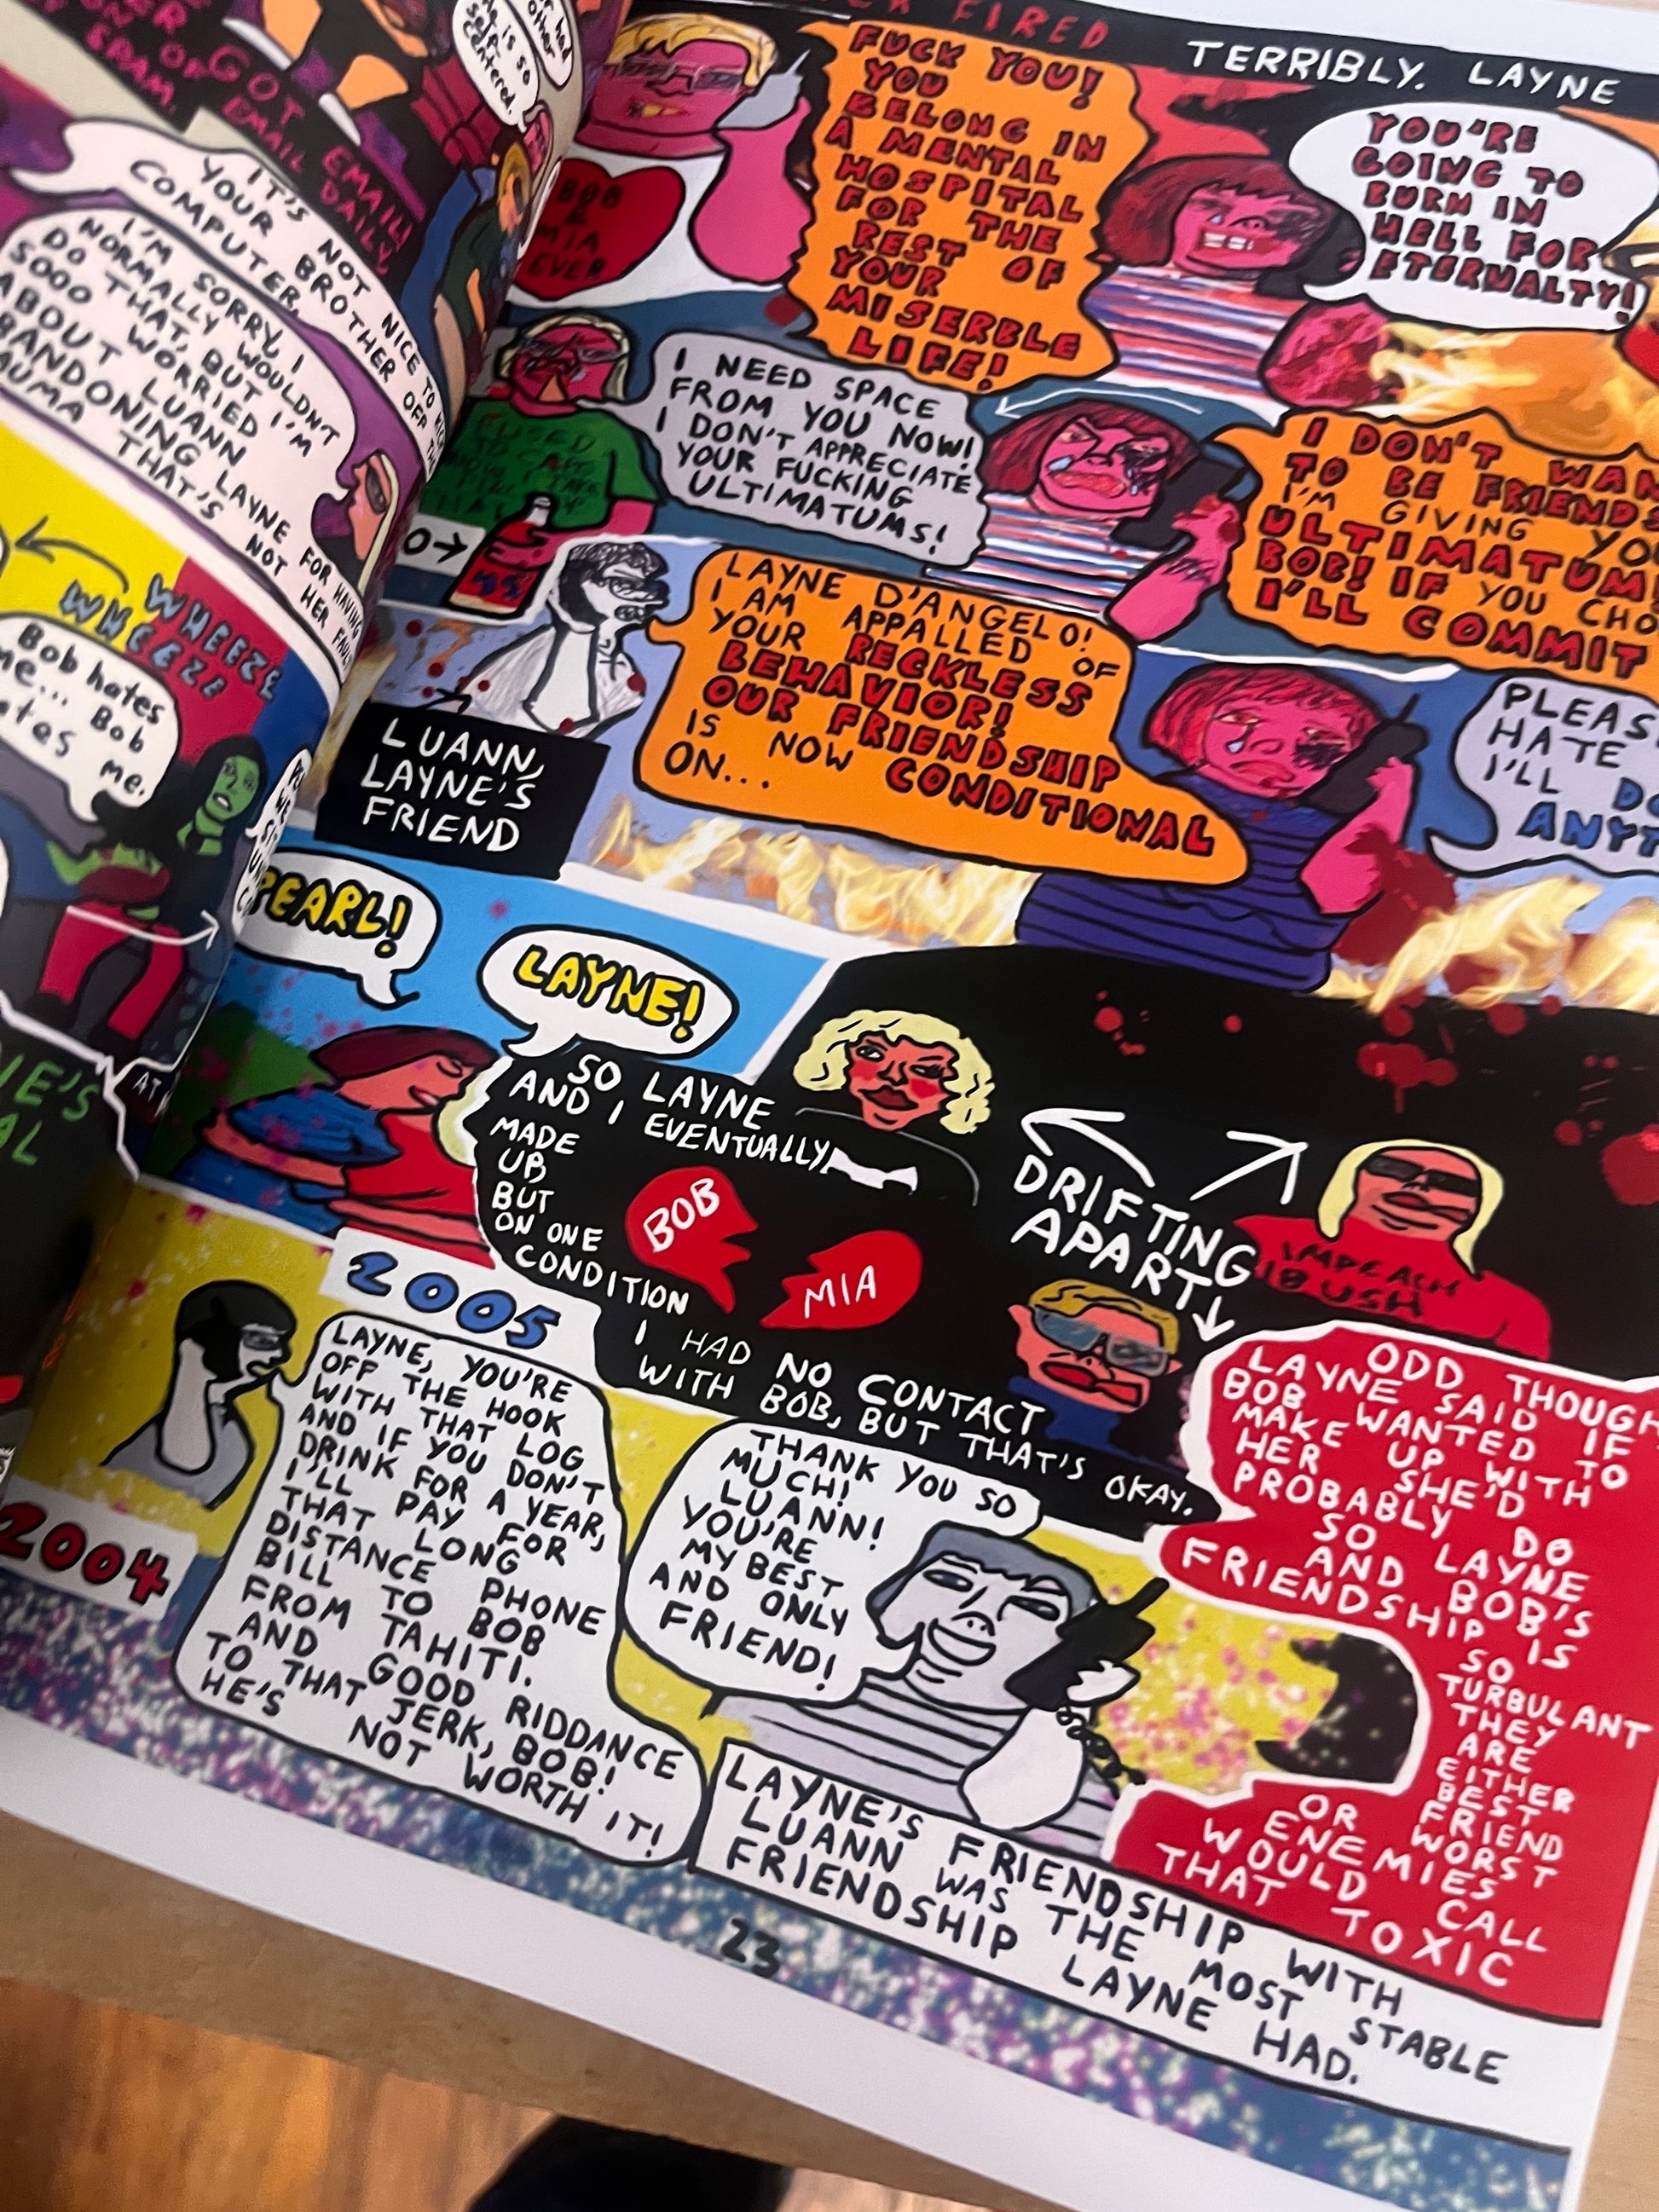 ON OF
SPAM.
GOT EMAIL
EMAIL DAILY.
he is so
self
centered.
had
other
IT'S NOT NICE TO
YOUR BROTHER OFF THE
COMPUTER,
I'M SORRY, I
NORMALLY WOULDN'T
DO THAT, BUT I'M
SOOO WORRIED
ABOUT LUANN
BANDONING LAYNE FOR HAVING
AUMA THAT'S NOT HER FAUL
WHEEZE
WHEEZE
Bob hates
me... Bob
ates me.
IE'S
AL
AT
FIRED
TERRIBLY. LAYNE
FUCK YOU!
YOU
BELONG IN
A MENTAL
HOSPITAL
FOR THE
REST OF
YOUR
MISERBLE
LIFE!
BOB
&
MIA
EVER
YOU'RE
GOING TO
BURN IN
HELL FOR
ETERNALTY!
I NEED SPACE
FROM YOU NOW!
I DON'T APPRECIATE
YOUR FUCKING
ULTIMATUMS!
O→
I DON'T WAN
TO BE FRIENDS
I'M GIVING YOU
ULTIMATUM
BOB! IF YOU CHO
I'LL COMMIT
LUANN,
LAYNE'S
FRIEND
LAYNE D'ANGELO!
I AM APPALLED OF
YOUR RECKLESS
BEHAVIOR!
OUR FRIENDSHIP
IS NOW CONDITIONAL
ON...
PLEAS
HATE
I'LL DO
ANYT
PEARL!
LAYNE!
SO LAYNE
AND I EVENTUALLY
MADE
UP,
BUT
ON ONE
CONDITION
I HAD NO CONTACT
WITH BOB, BUT THAT'S OKAY.
BOB
MIA
DRIFTING
APART
IMPEACH
BUSH
2004
2005
LAYNE, YOU'RE
OFF THE HOOK
WITH THAT LOG
AND IF YOU DON'T
DRINK FOR A YEAR,
I'LL PAY FOR
THAT LONG
DISTANCE PHONE
BILL TO BOB
FROM TAHITI.
AND GOOD RIDDANCE
TO THAT JERK, BOB!
HE'S NOT WORTH IT!
THANK YOU SO
MUCH!
LUANN!
YOU'RE
MY BEST
AND ONLY
FRIEND!
ODD THOUGH
LAYNE SAID IF
BOB WANTED TO
MAKE UP WITH
HER SHE'D
PROBABLY DO
SO LAYNE
AND BOB'S
FRIENDSHIP IS
SO
TURBULANT
THEY
ARE
EITHER
BEST
FRIEND
OR WORST
ENEMIES
WOULD CALL
THAT TOXIC
LAYNE'S FRIENDSHIP WITH
LUANN WAS THE MOST STABLE
FRIENDSHIP LAYNE HAD.
23